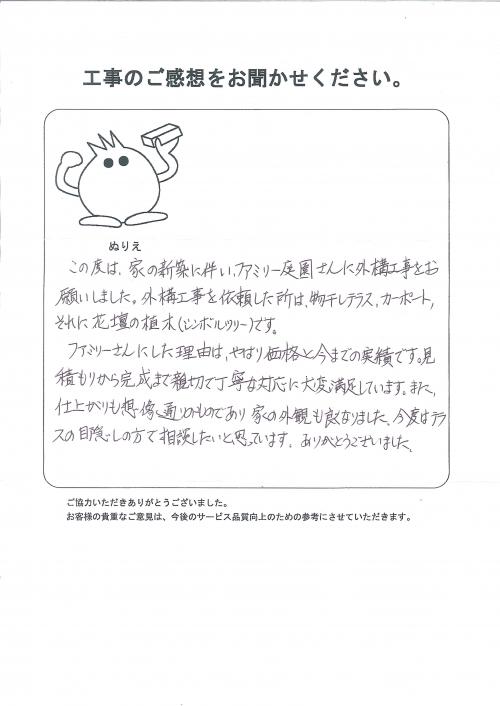 工事のご感想をお聞かせください。
ぬりえ
この度は、家の新築に伴い、ファミリー庭園さんに外構工事をお
願いしました。外構工事を依頼した所は、物干しテラス、カーポート、
それに花壇の植木(シンボルツリー)です。
ファミリーさんにした理由は、やはり価格と今までの実績です。見
積もりから完成まで親切で丁寧な対応に大変満足しています。また、
仕上がりも想像通りのものであり家の外観も良くなりました。今度はテラ
スの目隠しの方で相談したいと思っています。ありがとうございました。
ご協力いただきありがとうございました。
お客様の貴重なご意見は、今後のサービス品質向上のための参考にさせていただきます。